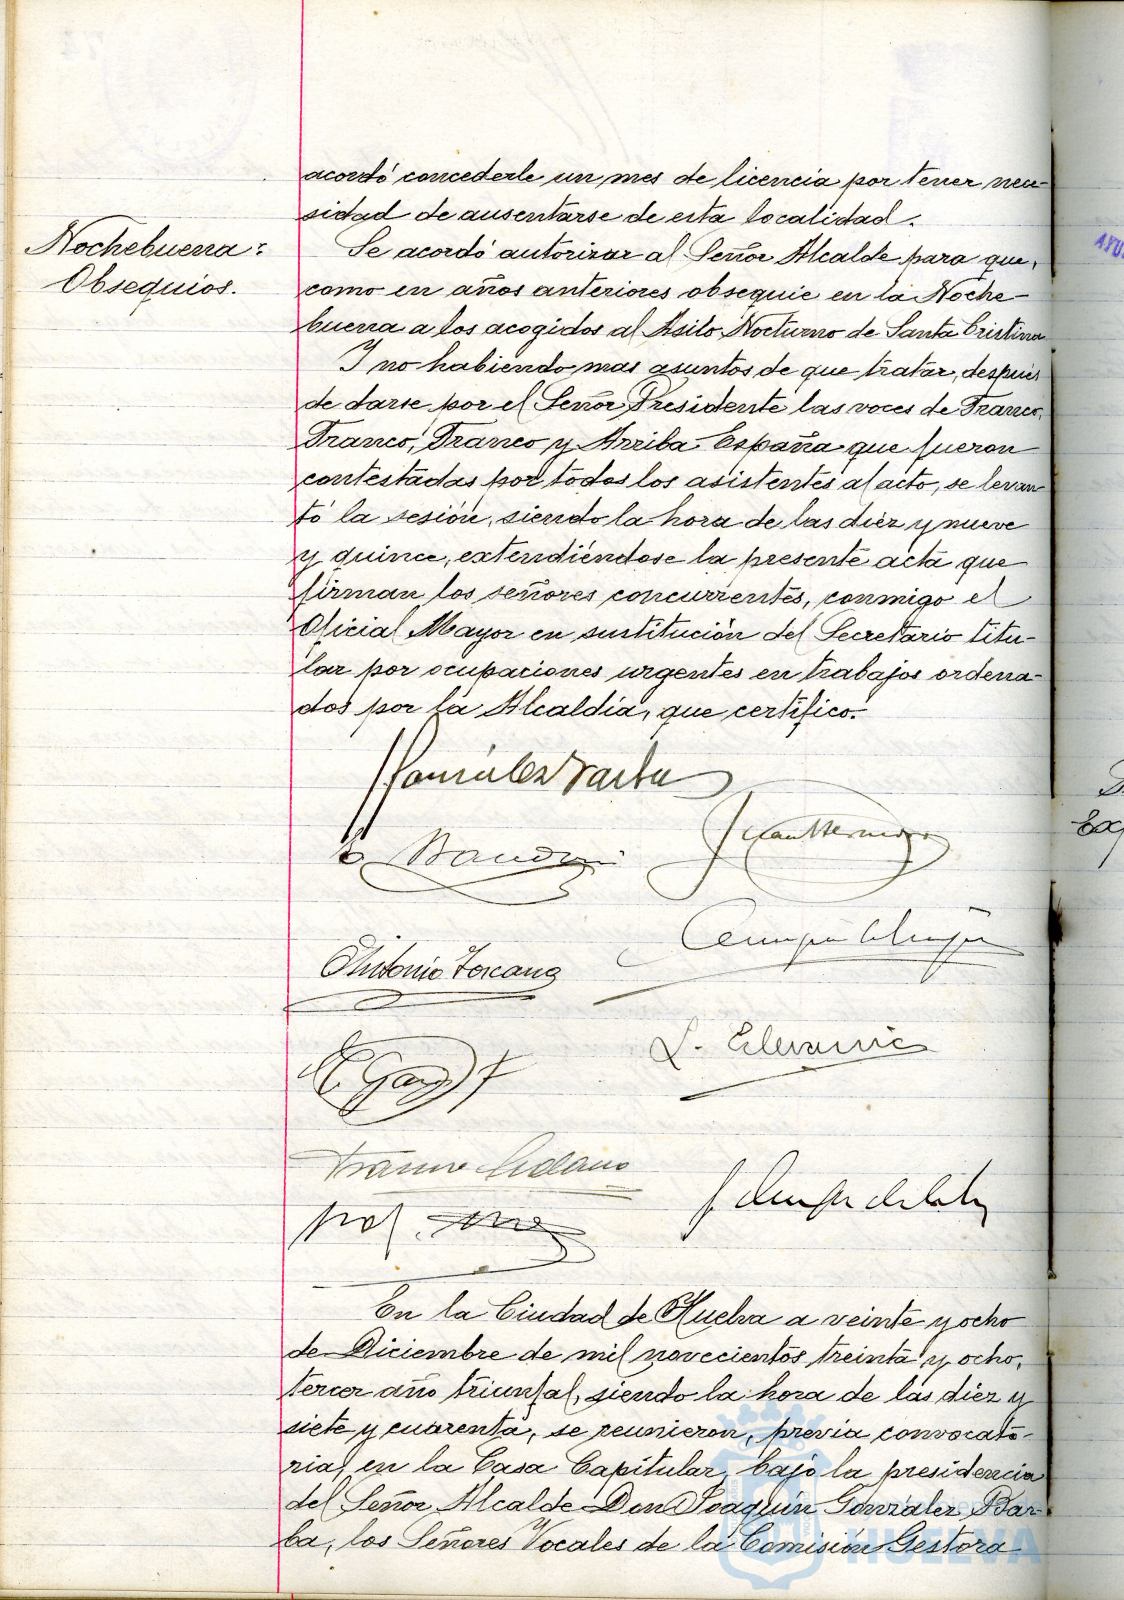 acordó concederle un mes de licencia por tener nece-
sidad de ausentarse de esta localidad.
Nochebuena:
Obsequios.
Se acordó autorizar al Señor Alcalde para que,
como en años anteriores obsequie en la Noche-
buena a los acogidos al Asilo Nocturno de Santa Cristina
Y no habiendo mas asuntos de que tratar, después
de darse por el Señor Presidente las voces de Franco,
Franco, Franco y Arriba España que fueron
contestadas por todos los asistentes al acto, se levan
tó la sesión, siendo la hora de las diez y nueve
y quince, extendiéndose la presente acta que
firman los señores concurrentes, conmigo el
Oficial Mayor en sustitución del Secretario titu-
lar por ocupaciones urgentes en trabajos ordena-
dos por la Alcaldía, que certifico.
González Barba
Antonio Toscano
En la Ciudad de Huelva a veinte y ocho
de Diciembre de mil novecientos treinta y ocho,
tercer año triunfal, siendo la hora de las diez y
siete y cuarenta, se reunieron, previa convocato-
ria, en la Casa Capitular, bajo la presidencia
del Señor Alcalde Don Joaquín González Bar-
ba, los Señores Vocales de la Comisión Gestora
HUELVA